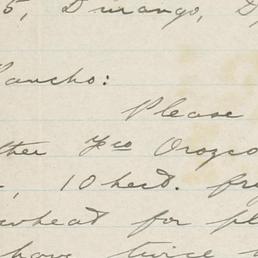 5, Durango, D
Pancho:
Please
ther Fco Orozco
, 10 hect. fri
wheat for pl
how twice